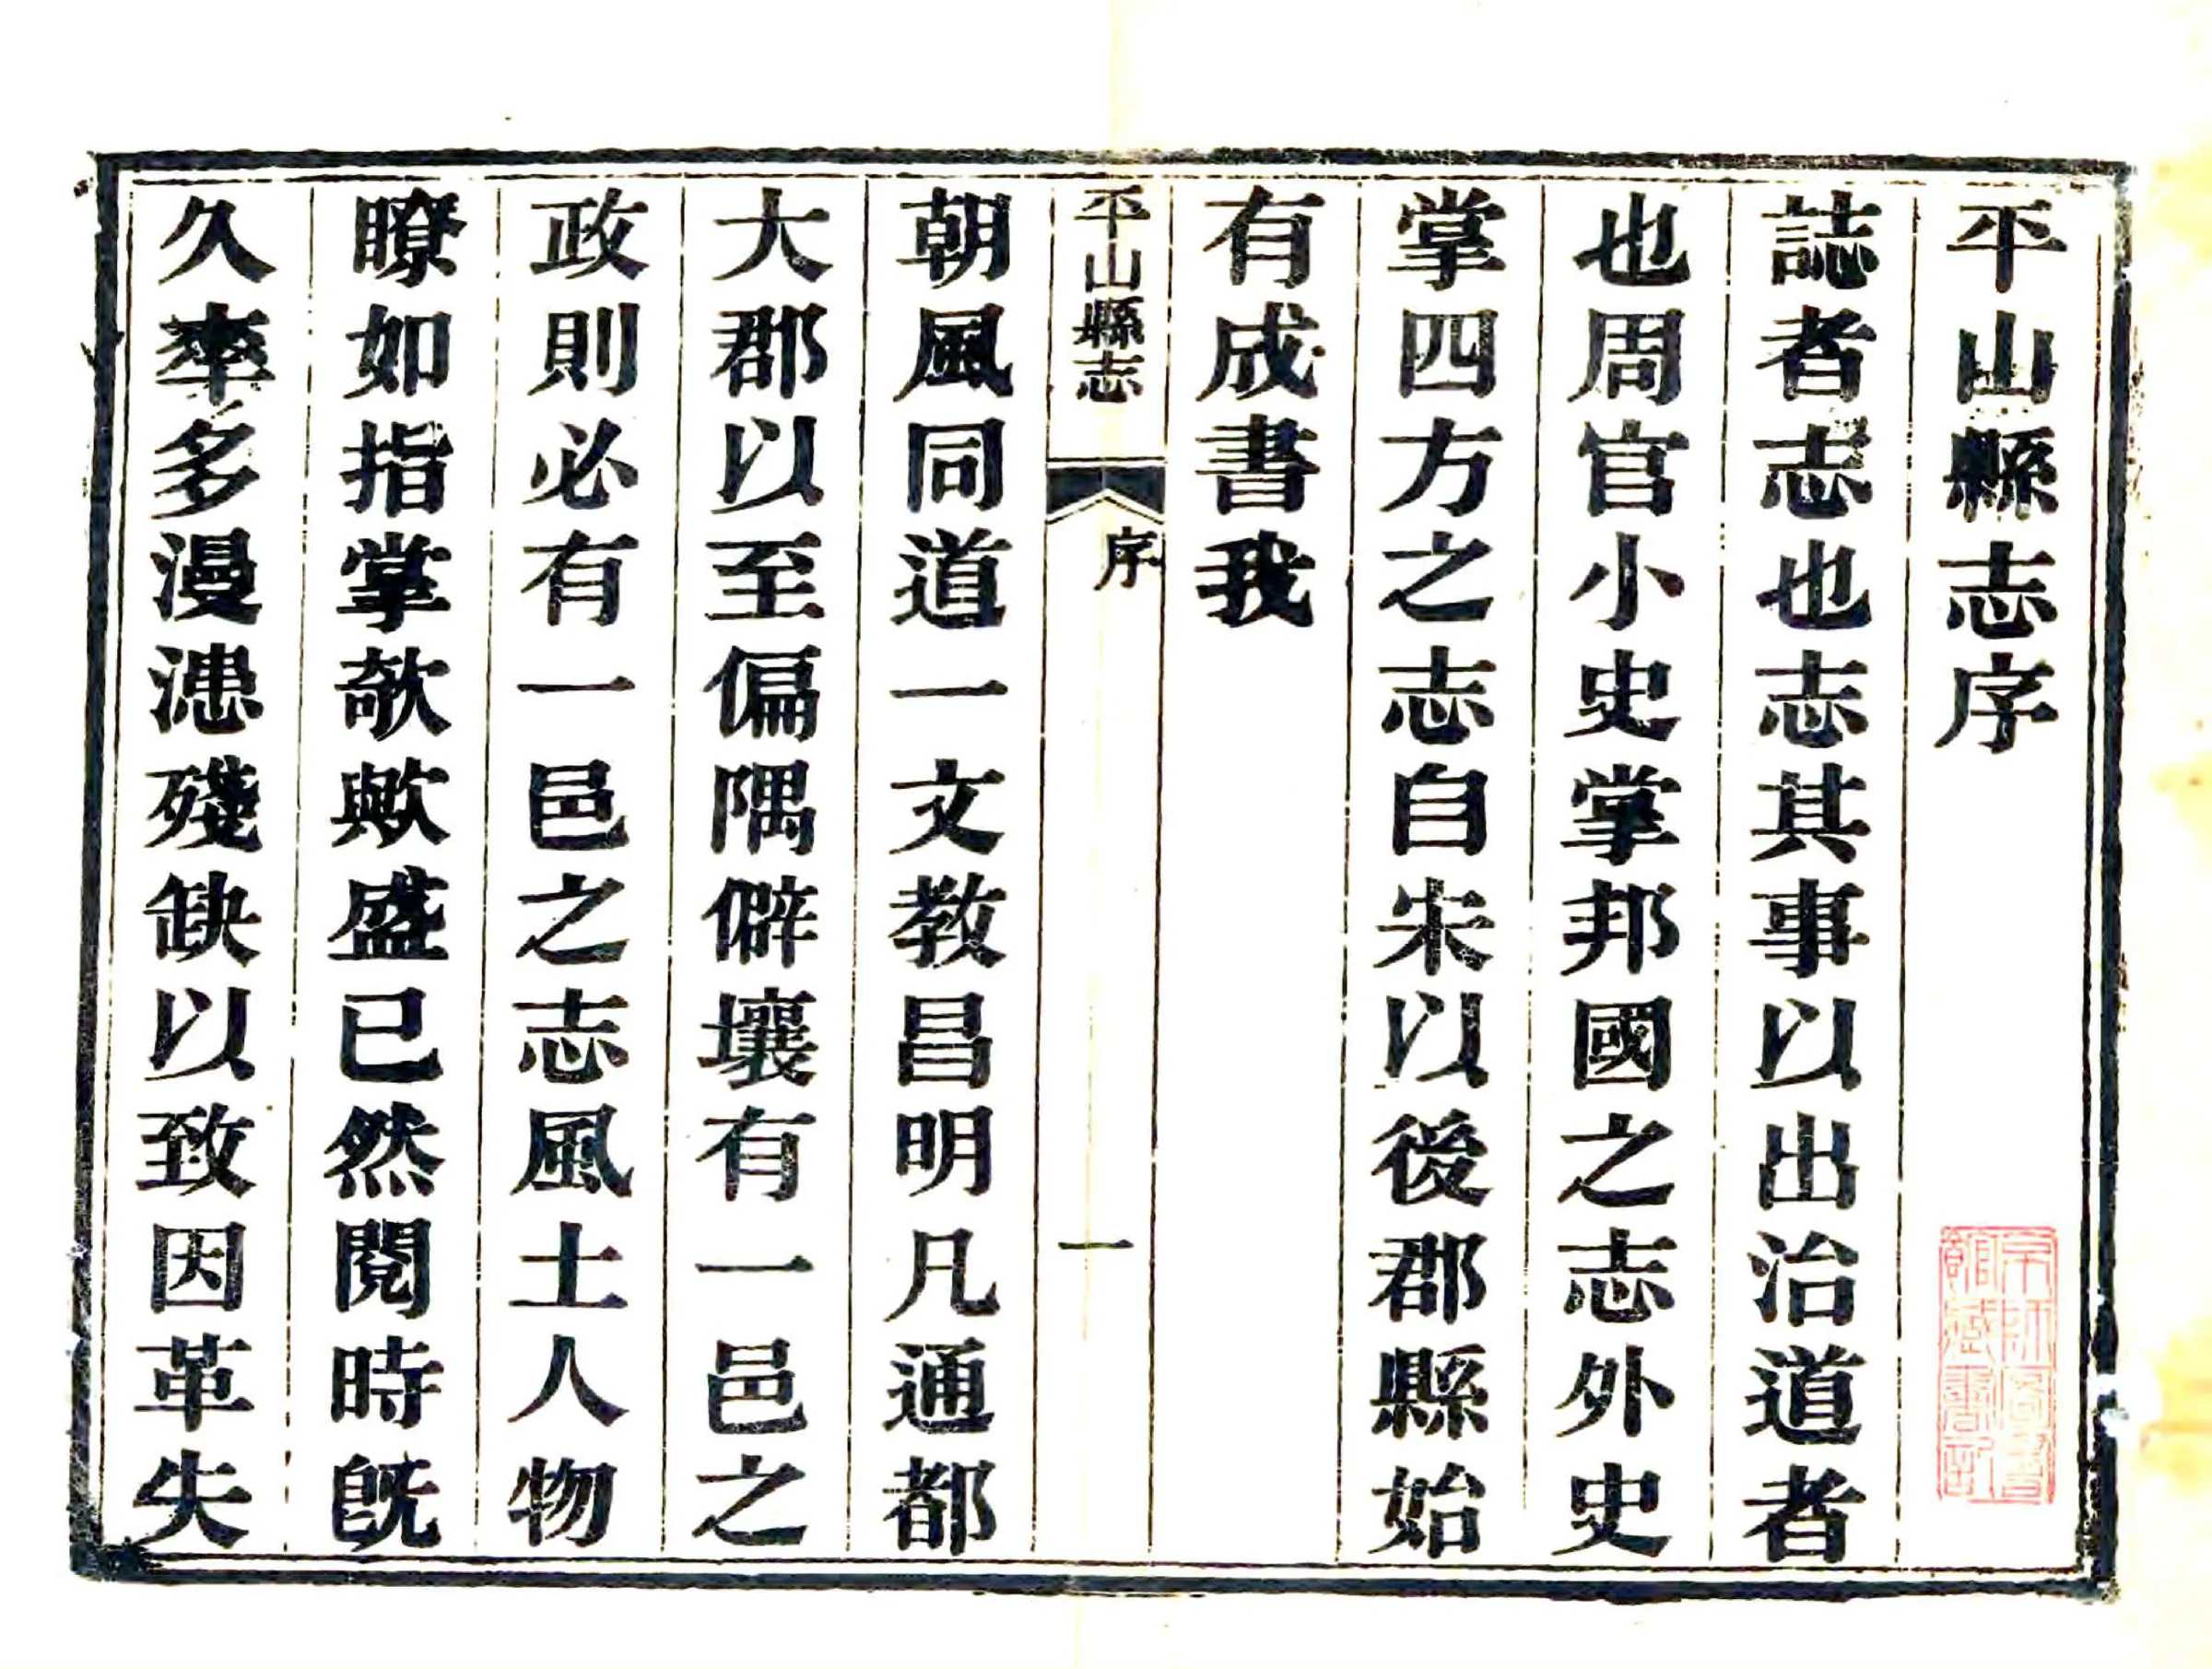 平山縣志序
誌者志也志其事以出治道者
也周官小史掌邦國之志外史
掌四方之志自朱以後郡縣始
有成書我
平山縣志 序 一
朝風同道一文教昌明凡通都
大郡以至偏隅僻壤有一邑之
政則必有一邑之志風土人物
瞭如指掌欹歟盛已然閱時旣
久率多漫漶殘缺以致因革失
京師圖書
館藏書記